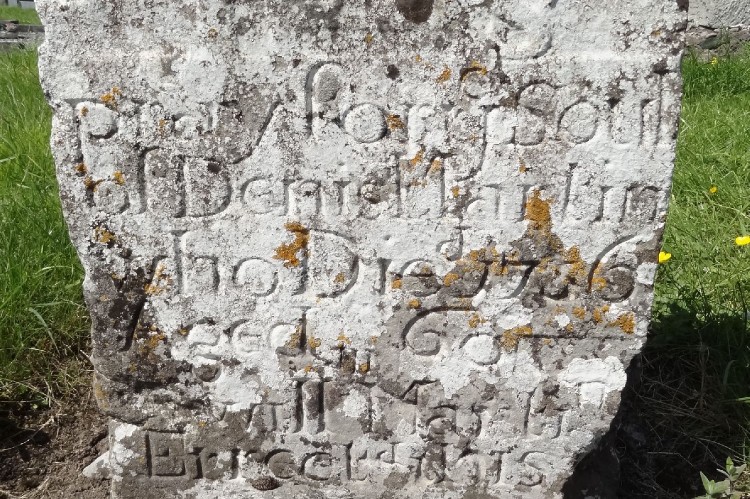 pray for ye Soull
of Denis Martin
who Died 1726
Aged 60
will Martin
Erected this